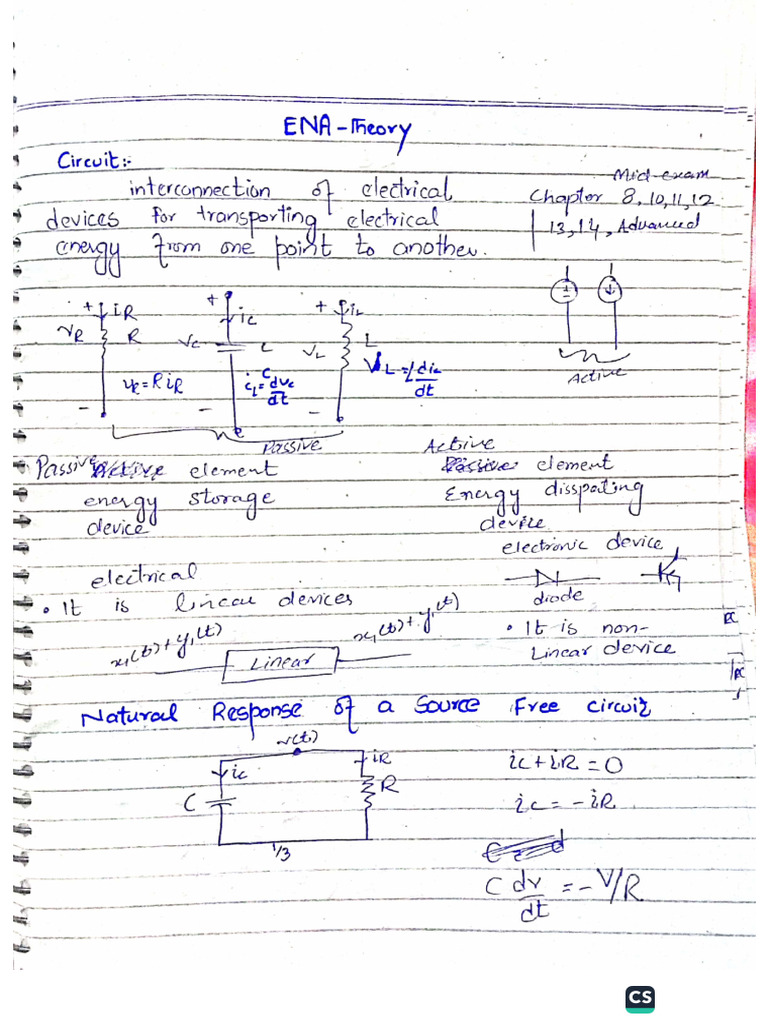 ENA-Theory
Circuit:-
interconnection of electrical
devices for transporting electrical
energy from one point to another.
Mid-exam
Chapter 8,10,11,12
13,14, Advanced
+ iR
VR R
VR = R iR
-
+ iC
VC C
iC = C dVc/dt
-
+ iL
VL L
VL = L diL/dt
-
Passive
+ -
Active
Passive element
energy storage
device
Active
element
Energy disspating
device
electronic device
diode
electrical
• It is linear devices
x1(t)+y1(t) Linear x1(t)+y1(t)
• It is non-
Linear device
RC
RC
Natural Response of a Source Free circuit
v(t)
iC iR
C R
1/3
iC + iR = 0
iC = -iR
C dv/dt = -V/R
CS